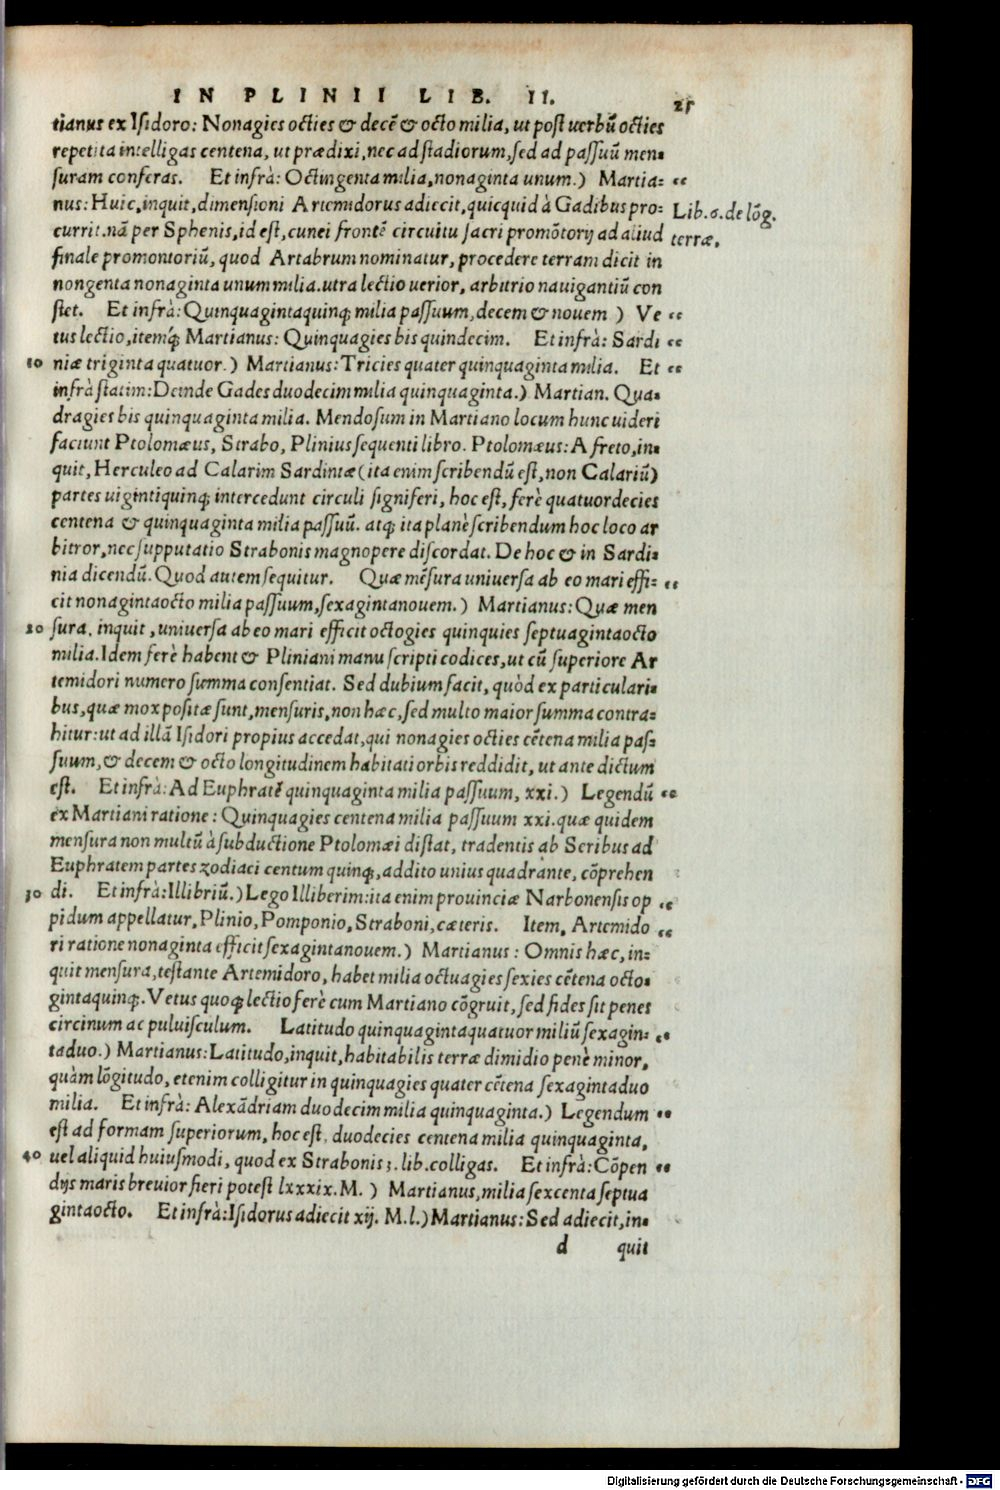 IN PLINII LIB. II. 25
tianus ex Isidoro: Nonagies octies & decē & octo milia, ut post uerbū octies
repetita intelligas centena, ut prædixi, nec ad stadiorum, sed ad passuū men-
suram conferas. Et infrà: Octingenta milia, nonaginta unum.) Martia- “
nus: Huic, inquit, dimensioni Artemidorus adiecit, quicquid à Gadibus pro- Lib. 6. de lōg.
currit. nā per Sphenis, id est, cunei frontē circuitu sacri promōtorij ad aliud terræ.
finale promontoriū, quod Artabrum nominatur, procedere terram dicit in
nongenta nonaginta unum milia. utra lectio uerior, arbitrio nauigantiū con
stet. Et infrà: Quinquagintaquinq; milia passuum, decem & nouem ) Ve “
tus lectio, itemq́; Martianus: Quinquagies bis quindecim. Et infrà: Sardi “
10 niæ triginta quatuor.) Martianus: Tricies quater quinquaginta milia. Et “
infrà statim: Deinde Gades duodecim milia quinquaginta.) Martian. Qua-
dragies bis quinquaginta milia. Mendosum in Martiano locum hunc uideri
faciunt Ptolomæus, Strabo, Plinius sequenti libro. Ptolomæus: A freto, in-
quit, Herculeo ad Calarim Sardiniæ (ita enim scribendū est, non Calariū)
partes uigintiquinq; intercedunt circuli signiferi, hoc est, ferè quatuordecies
centena & quinquaginta milia passuū. atq; ita planè scribendum hoc loco ar
bitror, nec supputatio Strabonis magnopere discordat. De hoc & in Sardi-
nia dicendū. Quod autem sequitur. Quæ mēsura uniuersa ab eo mari effi- “
cit nonagintaocto milia passuum, sexagintanouem.) Martianus: Quæ men
20 sura, inquit, uniuersa ab eo mari efficit octogies quinquies septuagintaocto
milia. Idem ferè habent & Pliniani manu scripti codices, ut cū superiore Ar
temidori numero summa consentiat. Sed dubium facit, quòd ex particulari-
bus, quæ mox positæ sunt, mensuris, non hæc, sed multo maior summa contra-
hitur: ut ad illā Isidori propius accedat, qui nonagies octies cētena milia pas-
suum, & decem & octo longitudinem habitati orbis reddidit, ut ante dictum
est. Et infrà: Ad Euphratē quinquaginta milia passuum, xxi.) Legendū “
ex Martiani ratione: Quinquagies centena milia passuum xxi. quæ quidem
mensura non multū à subductione Ptolomæi distat, tradentis ab Scribus ad
Euphratem partes zodiaci centum quinq;, addito unius quadrante, cōprehen
30 di. Et infrà: Illibriū.) Lego Illiberim: ita enim prouinciæ Narbonensis op “
pidum appellatur, Plinio, Pomponio, Straboni, cæteris. Item, Artemido “
ri ratione nonaginta efficit sexagintanouem.) Martianus: Omnis hæc, in-
quit mensura, testante Artemidoro, habet milia octuagies sexies cētena octo-
gintaquinq;. Vetus quoq; lectio ferè cum Martiano cōgruit, sed fides sit penes
circinum ac puluisculum. Latitudo quinquagintaquatuor miliū sexagin- “
taduo.) Martianus: Latitudo, inquit, habitabilis terræ dimidio penè minor,
quàm lōgitudo, etenim colligitur in quinquagies quater cētena sexagintaduo
milia. Et infrà: Alexādriam duodecim milia quinquaginta.) Legendum “
est ad formam superiorum, hoc est, duodecies centena milia quinquaginta,
40 uel aliquid huiusmodi, quod ex Strabonis 3. lib. colligas. Et infrà: Cōpen “
dijs maris breuior fieri potest lxxxix. M. ) Martianus, milia sexcenta septua
gintaocto. Et infrà: Isidorus adiecit xij. M. l.) Martianus: Sed adiecit, in-
d quit
Digitalisierung gefördert durch die Deutsche Forschungsgemeinschaft - DFG